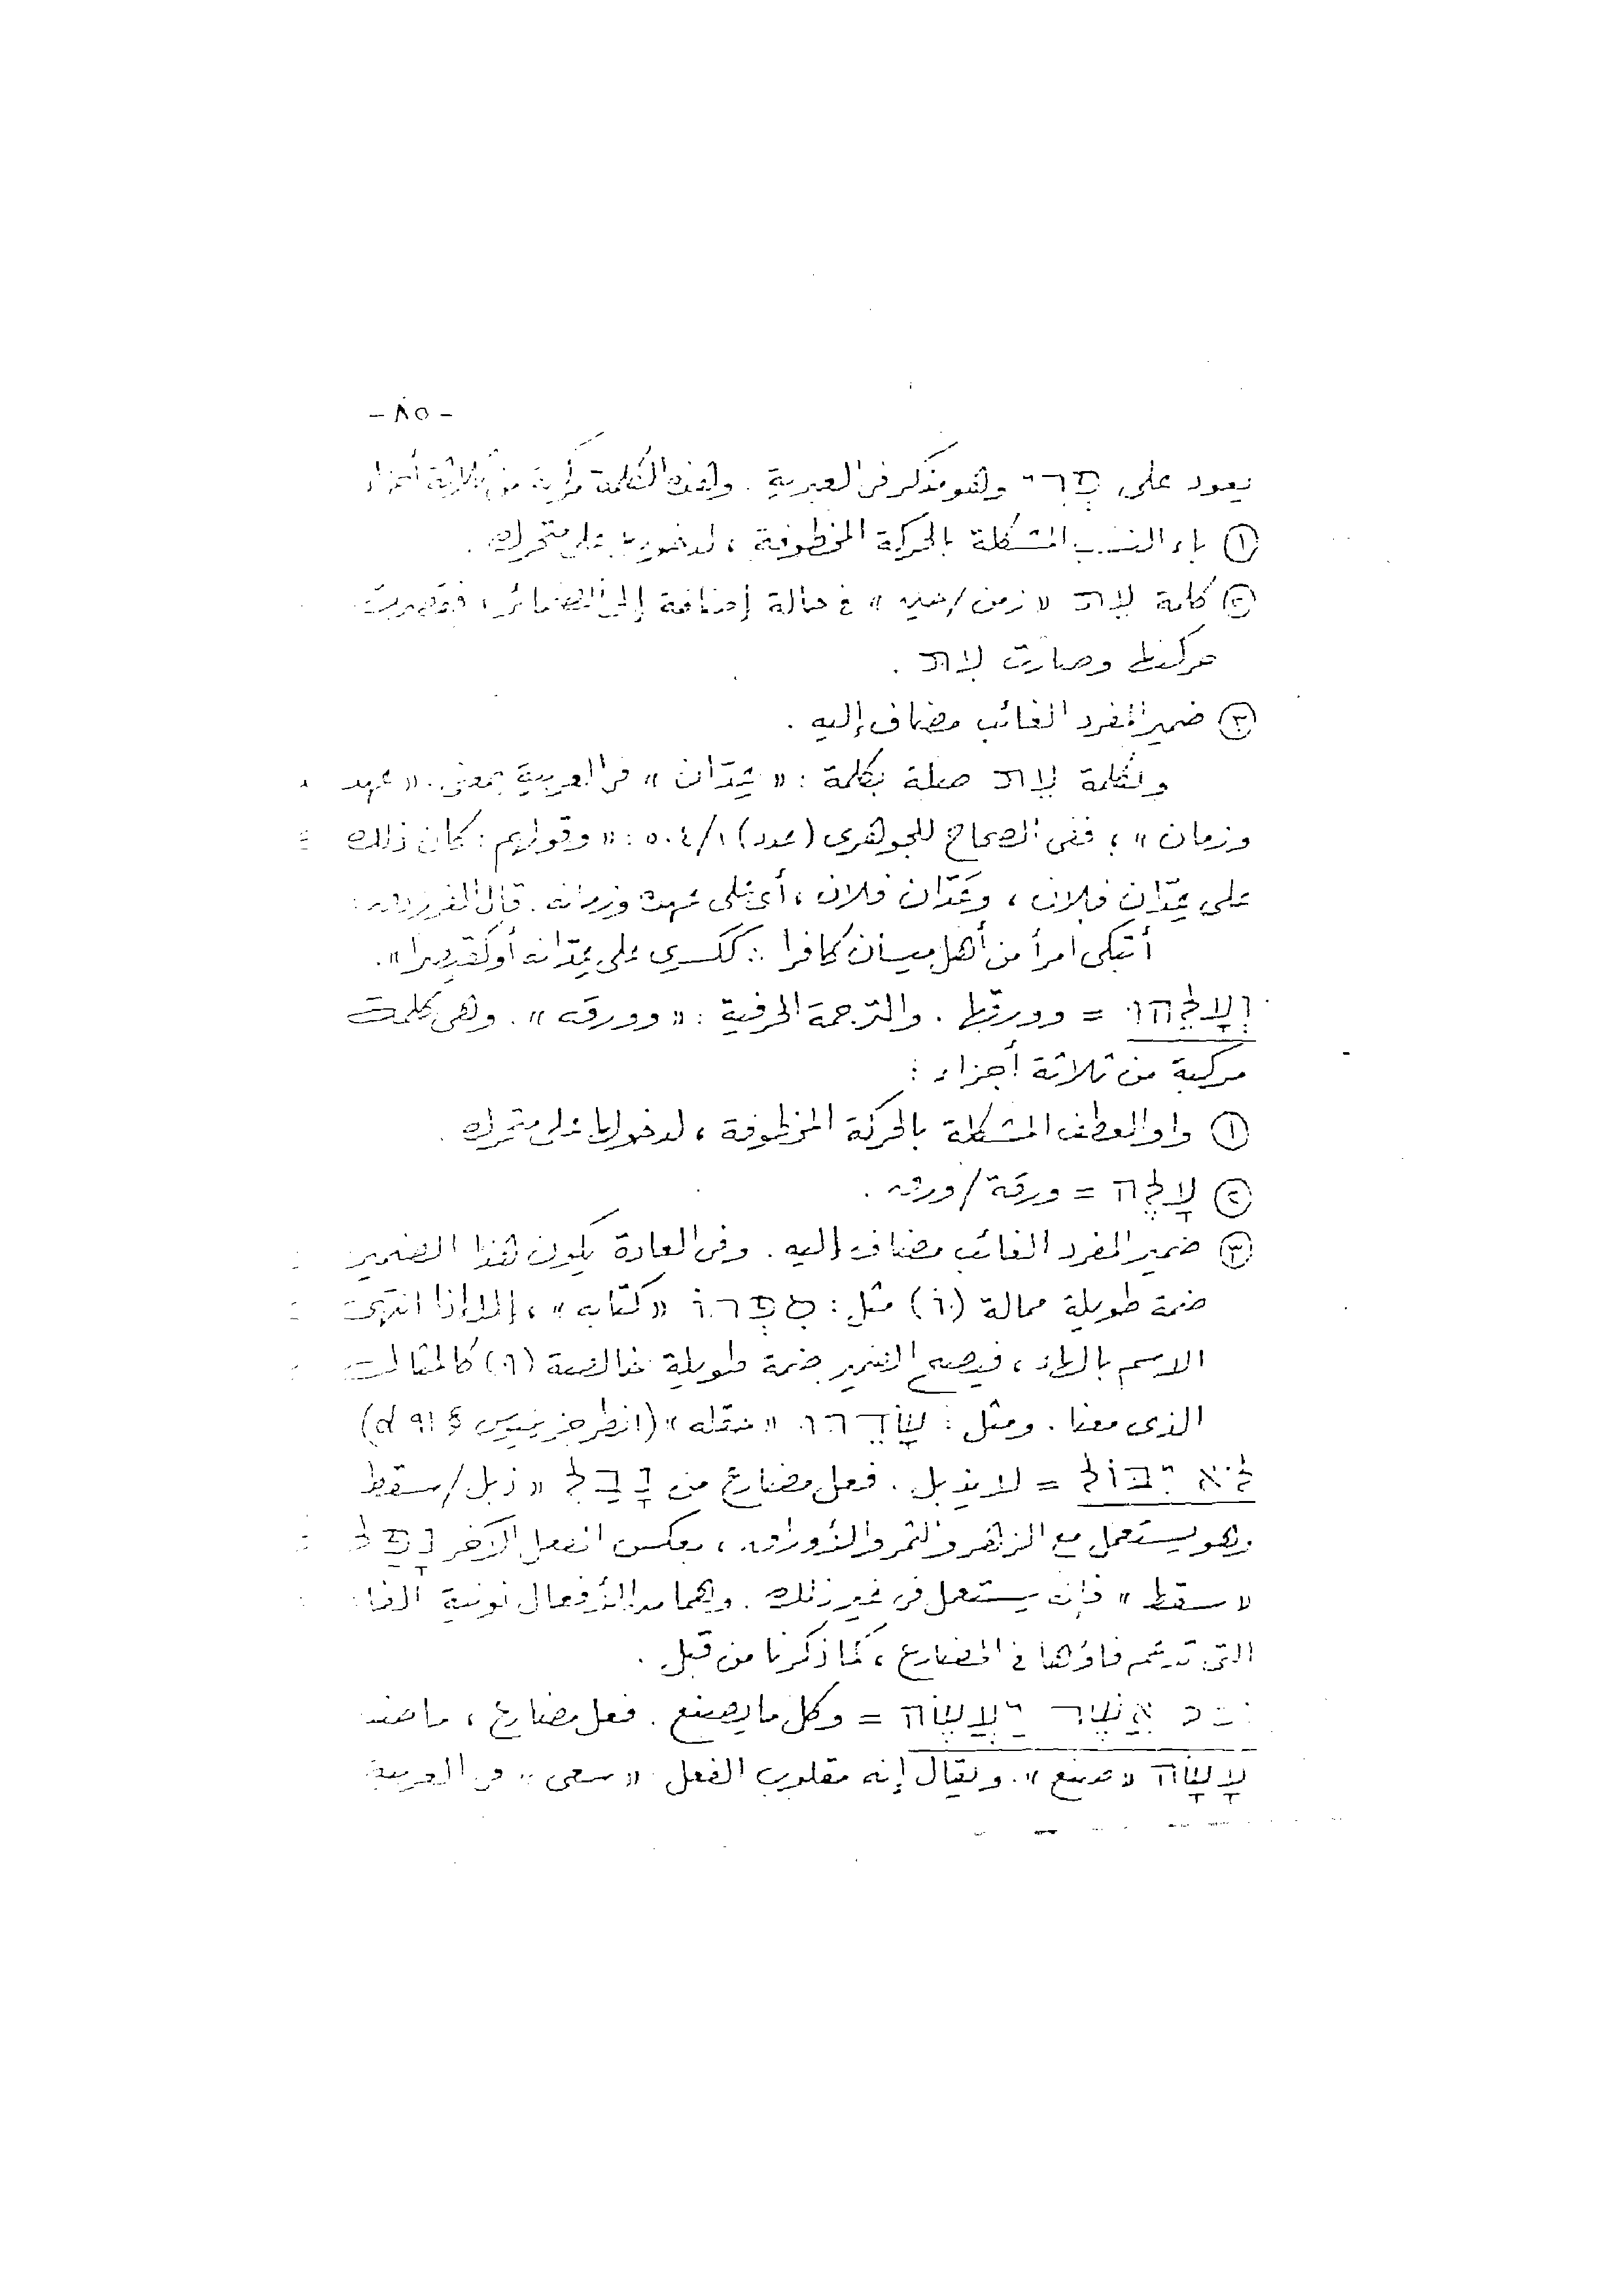 - ٨٥ -
يعود على פְּרִי وهو مذكر فى العبرية . وهذه الكلمة مركبة من ثلاثة أجزاء
① باء النسب المشكلة بالحركة المخطوفة ، لدخولها على متحرك .
② كلمة עֵת « زمن / حين » فى حالة إضافة إلى الضمائر ، فقصرت
حركتها وصارت עִת .
③ ضمير المفرد الغائب مضاف إليه .
ولكلمة עֵת صلة بكلمة : « عِدّان » فى العربية بمعنى « عهد
وزمان » ؛ ففى الصحاح للجوهرى (عدد) ٥٠٤/١ : « وقولهم : كان ذلك
على عِدّان فلان ، وعَدّان فلان ، أى على عهده وزمانه . قال الفرزدق :
أتبكى امرأ من أهل ميسان كافرا :: ككسرى على عدّانه أو كقيصرا » .
וְעָלֵהוּ = وورقها . والترجمة الحرفية : « وورقه » . وهى كلمة
مركبة من ثلاثة أجزاء :
① واو العطف المشكلة بالحركة المخطوفة ، لدخولها على متحرك .
② עָלֶה = ورقة / ورق .
③ ضمير المفرد الغائب مضاف إليه . وفى العادة يكون هذا الضمير
ضمة طويلة ممالة (וֹ) مثل : סִפְרוֹ « كتابه » ، إلا إذا انتهى
الاسم بالهاء ، فيصبح الضمير ضمة طويلة خالصة (וּ) كالمثال
الذى معنا . ومثل : שָׂדֵהוּ « حقله » (انظر جزينيوس § ٩١ d)
לֹא יִבּוֹל = لا يذبل . فعل مضارع من נָבֵל « ذبل / سقط
وهو يستعمل مع الزهر والثمر والأوراق ، بعكس الفعل الآخر נָפַל
« سقط » فإنه يستعمل فى غير ذلك . وهما من الأفعال نونية الفاء
التى تدغم فاؤها فى المضارع ، كما ذكرنا من قبل .
אֲשֶׁר יַעֲשֶׂה = وكل ما يصنع . فعل مضارع ، ماضيه
עָשָׂה « صنع » . ويقال إنه مقلوب الفعل « سعى » فى العربية